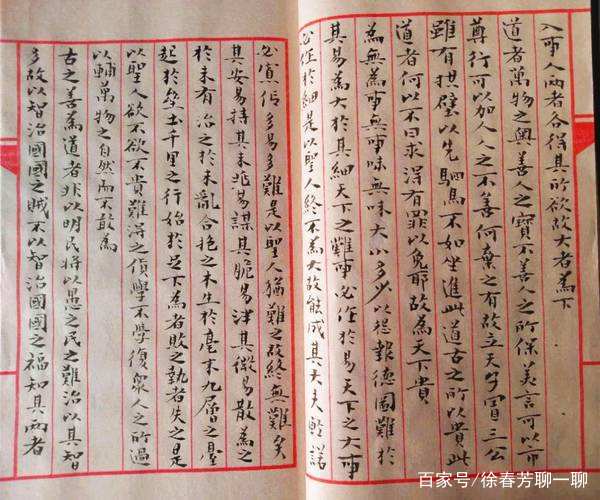 入事人兩者各得其所欲故大者為下
道者萬物之奧善人之寶不善人之所保美言可以市
尊行可以加人人之不善何棄之有故立天子置三公
雖有拱璧以先駟馬不如坐進此道古之所以貴此
道者何以不日求得有罪以免耶故為天下貴
為無為事無事味無味大小多少以怨報德圖難於
其易為大於其細天下之難事必作於易天下之大事
必作於細是以聖人終不為大故能成其大夫輕諾
必寡信多易多難是以聖人猶難之故終無難矣
其安易持其未兆易謀其脆易泮其微易散為之
於未有治之於未亂合抱之木生於毫末九層之臺
起於壘土千里之行始於足下為者敗之執者失之是
以聖人欲不欲不貴難得之貨學不學復眾人之所過
以輔萬物之自然而不敢為
古之善為道者非以明民將以愚之民之難治以其智
多故以智治國國之賊不以智治國國之福知其兩者
百家号/徐春芳聊一聊